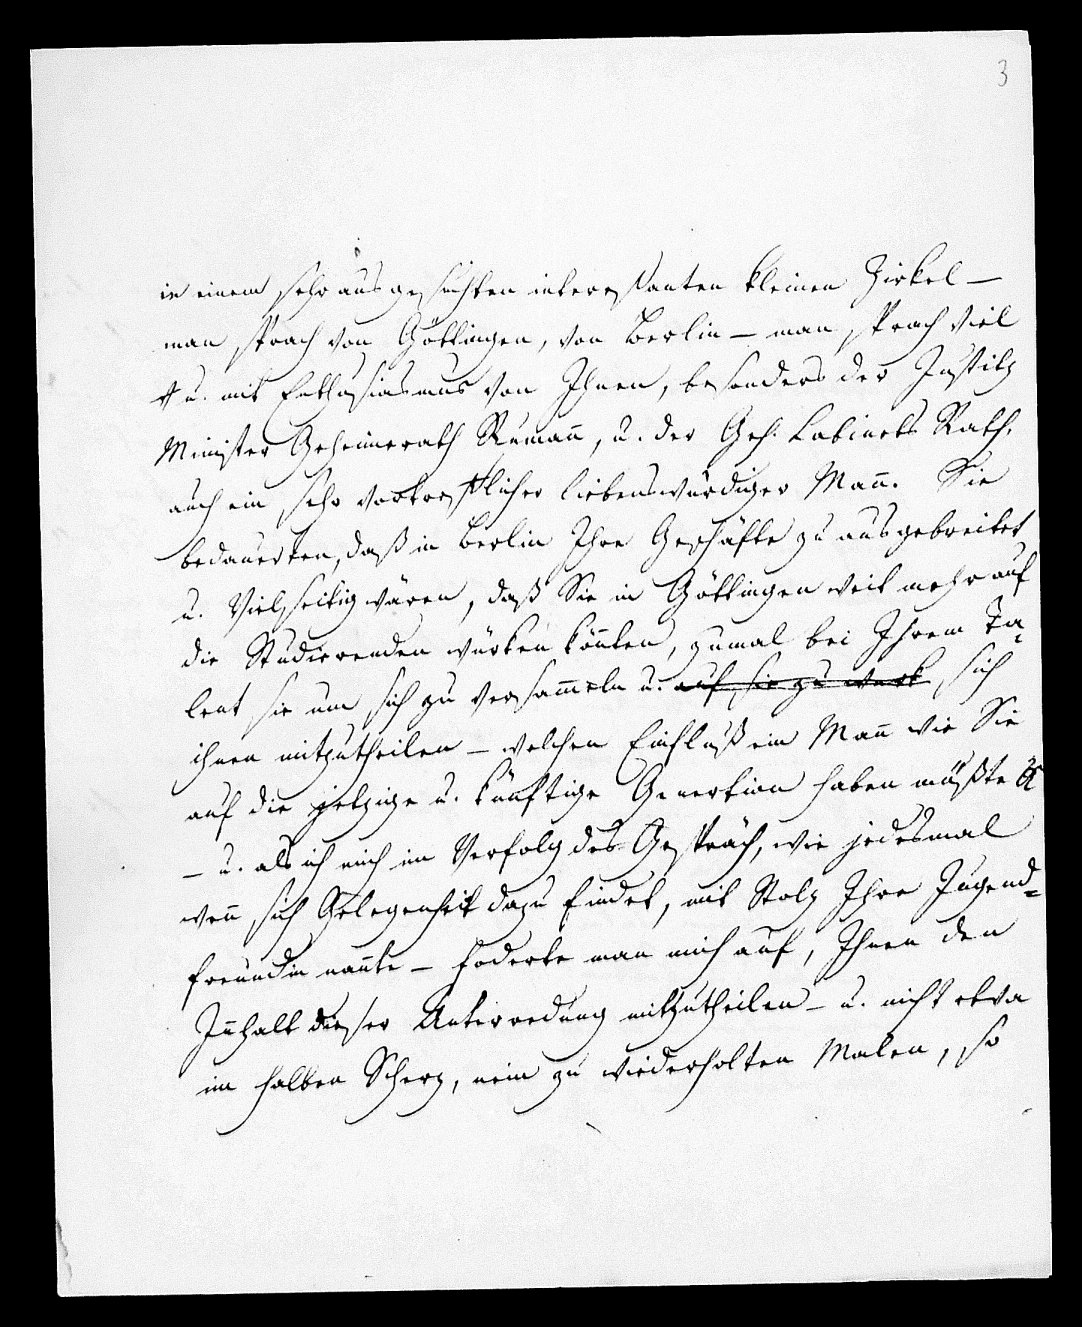 3
in einem sehr ausgesuchten interessanten kleinen Zirkel –
man sprach von Göttingen, von Berlin – man sprach viel
u. mit Enthusiasmus von Ihnen, besonders der Justitz
Minister Geheimerath Rumañ, u. der Geh. Cabinets Rath,
auch ein sehr vortrefflicher liebenswürdiger Mañ. Sie
bedauerten, daß in Berlin Ihre Geschäfte zu ausgebreitet
u. Vielseitig wären, daß Sie in Göttingen weit mehr auf
die Studierenden würken köñten, zumal bei Ihrem Ta-
lent sie um sich zu versam̄eln u. auf sie zu wurk sich
ihnen mitzutheilen – welchen Einfluß ein Mañ wie Sie
auf die jetzige u. künftige Genertion haben müßte &
– u. als ich mich im Verfolg des Gespräch, wie jedesmal
weñ sich Gelegenheit dazu findet, mit Stolz Ihre Jugend=
freundin nañte – foderte man mich auf, Ihnen den
Iñhalt dieser Unterredung mitzutheilen – u. nicht etwa
im halben Scherz, nein zu wiederholten Malen, so